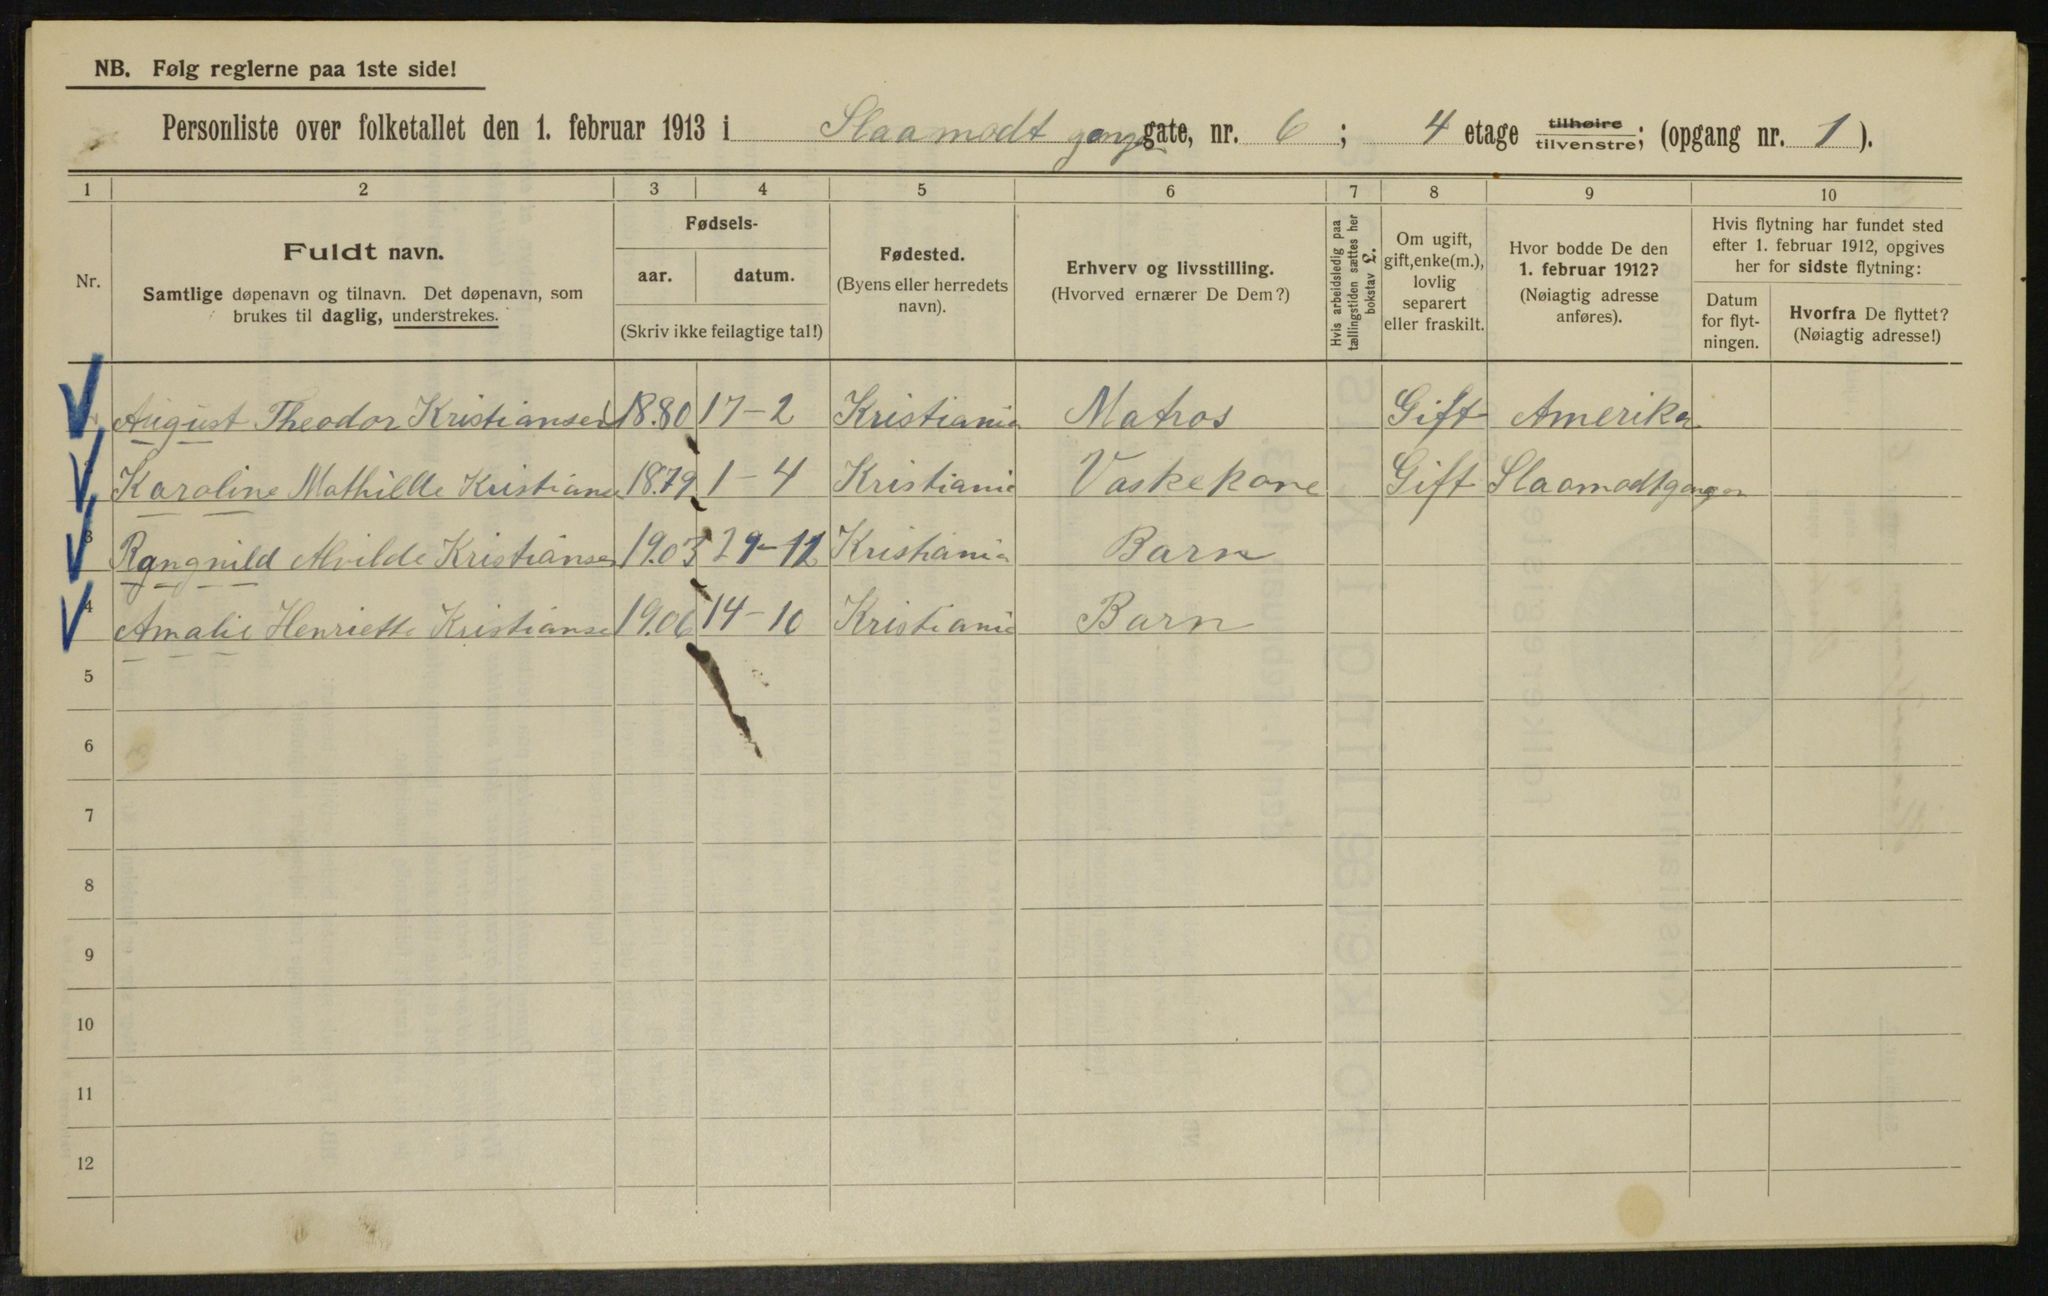 NB. Følg reglerne paa 1ste side!
Personliste over folketallet den 1. februar 1913 i Slaamodt gang gate, nr. 6; 4 etage tilhøire tilvenstre; (opgang nr. 1).
1 2 3 4 5 6 7 8 9 10
Nr.
Fuldt navn.
Samtlige døpenavn og tilnavn. Det døpenavn, som
brukes til daglig, understrekes.
Fødsels-
aar. datum.
(Skriv ikke feilagtige tal!)
Fødested.
(Byens eller herredets
navn).
Erhverv og livsstilling.
(Hvorved ernærer De Dem?)
Hvis arbeidsledig paa
tællingstiden sættes her
bokstav £.
Om ugift,
gift, enke(m.),
lovlig
separert
eller fraskilt.
Hvor bodde De den
1. februar 1912?
(Nøiagtig adresse
anføres).
Hvis flytning har fundet sted
efter 1. februar 1912, opgives
her for sidste flytning:
Datum
for flyt-
ningen.
Hvorfra De flyttet?
(Nøiagtig adresse!)
August Theodor Kristiansen 1880 17-2 Kristiania Matros Gift Amerika
Karoline Mathilde Kristianse 1879 1-4 Kristiania Vaskekone Gift Slaamodtgangen
3 Rangnild Alvilde Kristiansen 1903 Kristiania Barn
4 Amalie Henriette Kristianse 1906 14-10 Kristiania Barn
5
6
7
8
9
10
11
12